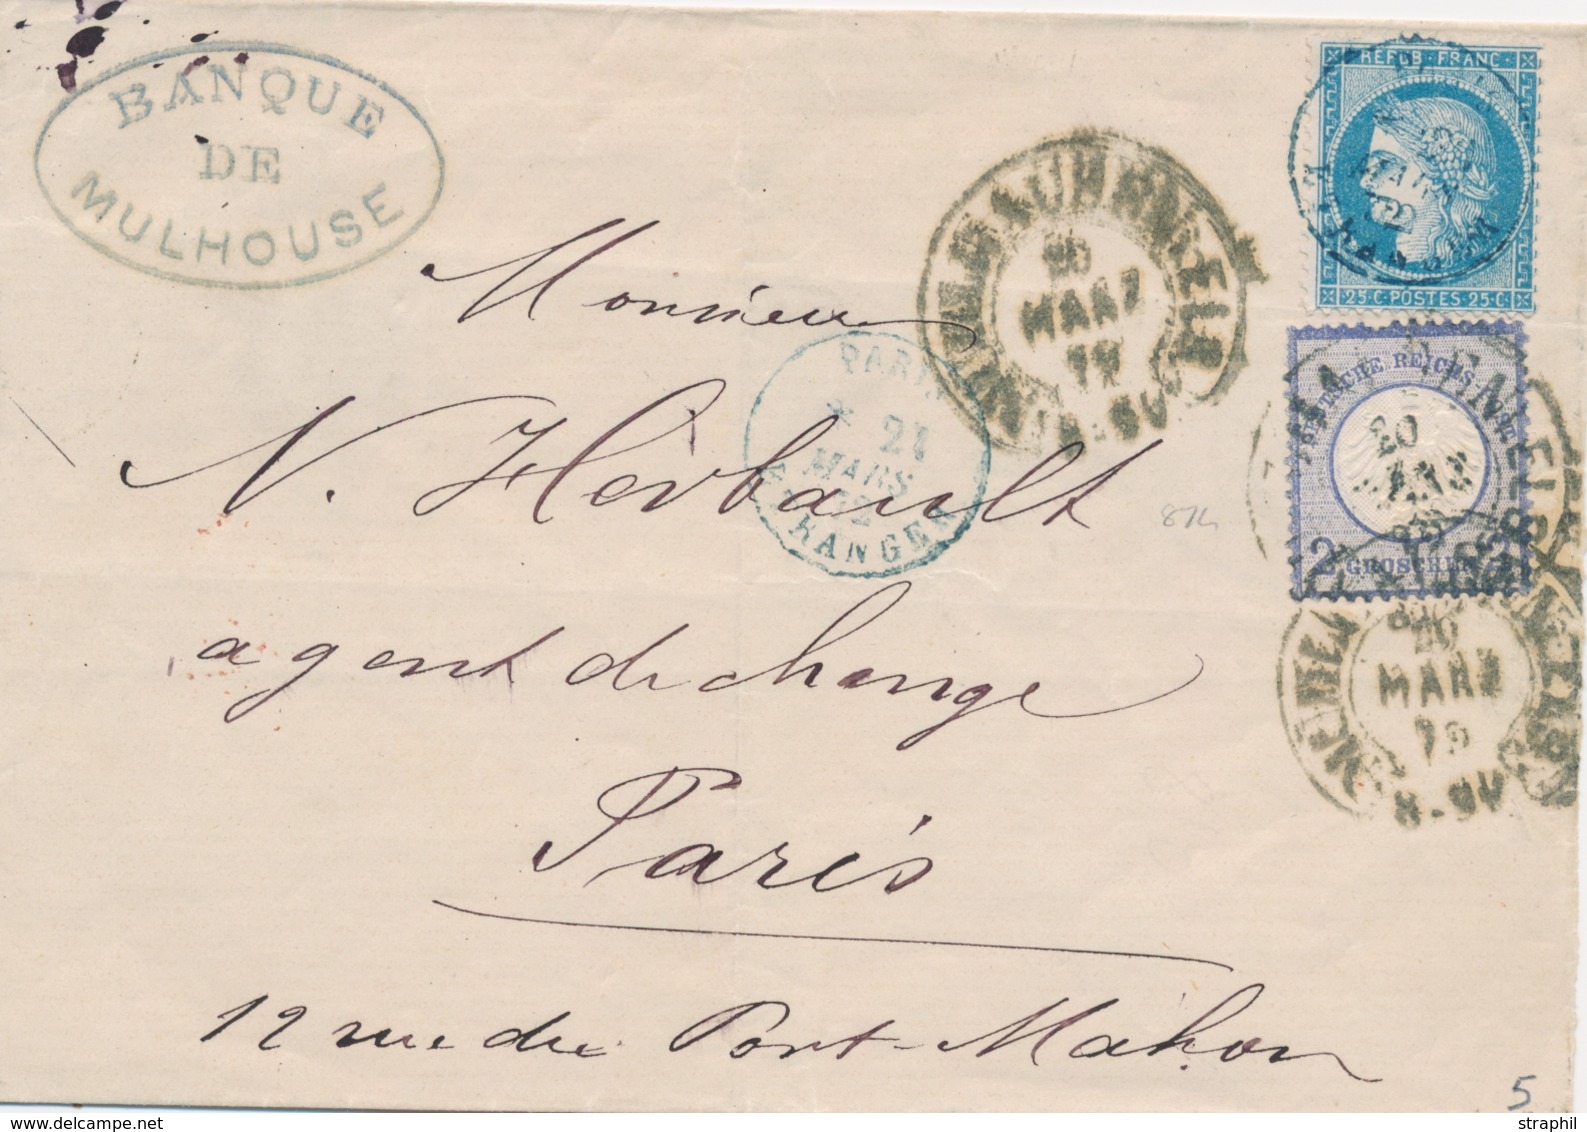 BANQUE
DE
MULHOUSE
REPUB · FRANC
25·C·POSTES·25·C
MÜLHAUSEN
20
MÄRZ
72
Monsieur
PARIS
21
MARS
72
ETRANGER
DEUTSCHE REICHS-POST
20
2 GROSCHEN 2
N. Herbault
874
agent de change
20
MARZ
8-9 N
Paris
12 rue du Port-Mahon
5
straphil